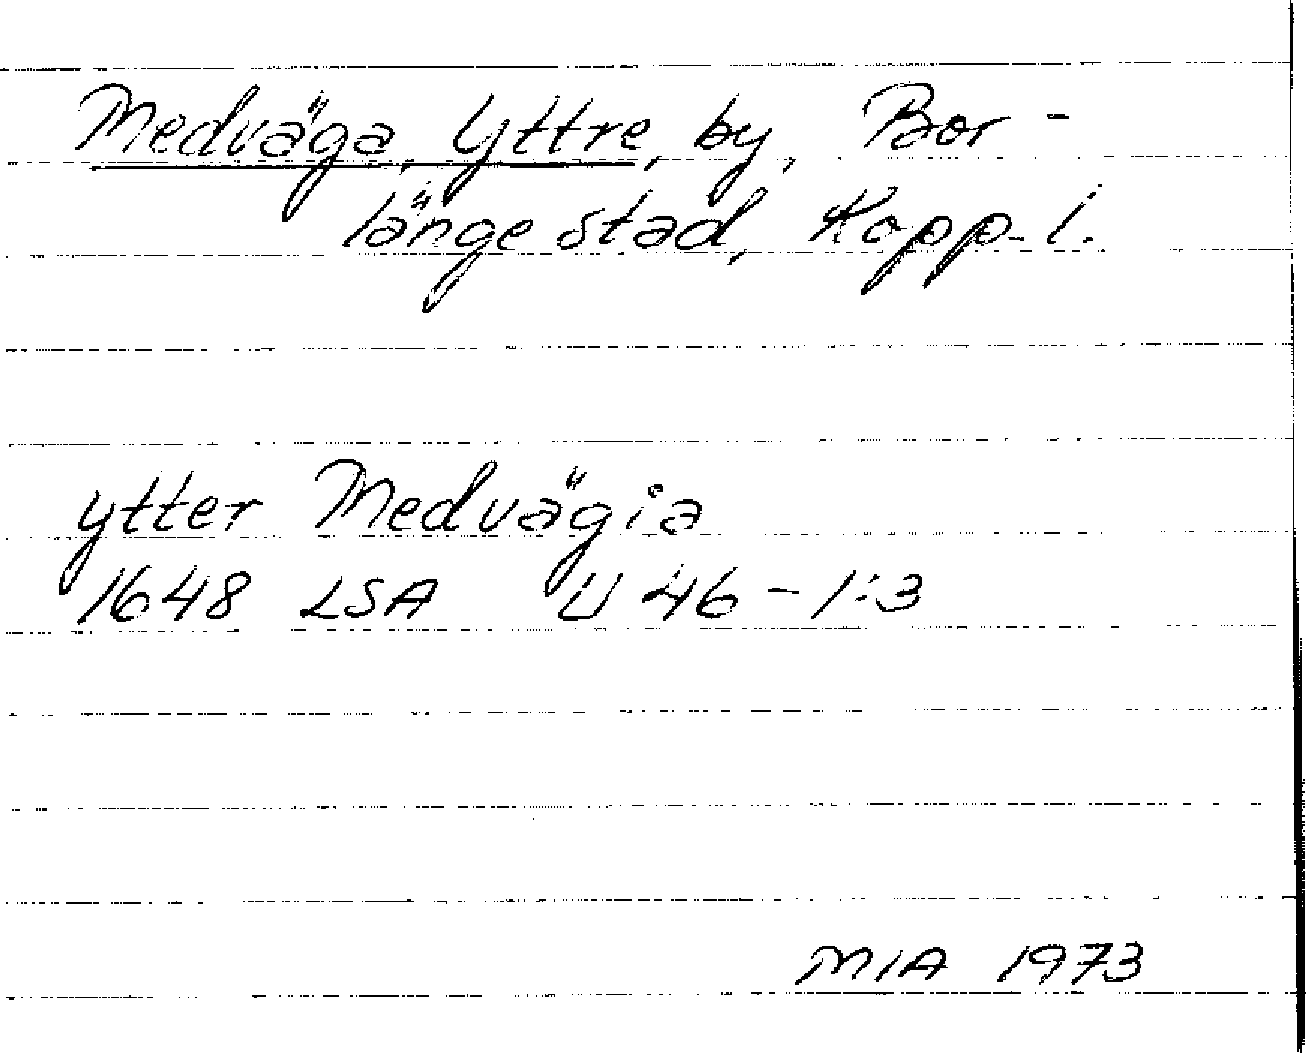 Medväga, Yttre, by, Bor-
länge stad, Kopp. l.
ytter Medvägia
1648 LSA U 46-1:3
MIA 1973